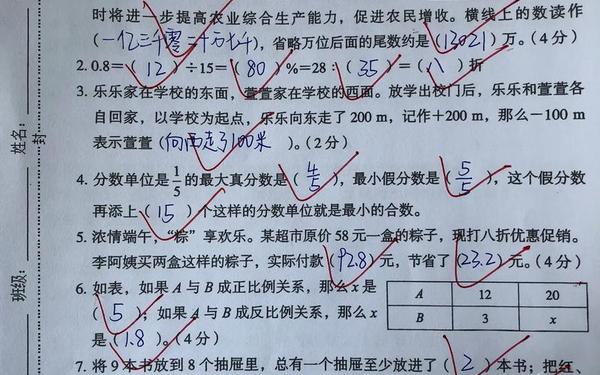 时将进一步提高农业综合生产能力，促进农民增收。横线上的数读作
（一亿三千零二十万七千），省略万位后面的尾数约是（13021）万。（4分）
2. 0.8＝（12）÷15＝（80）%＝28：（35）＝（八）折
3. 乐乐家在学校的东面，萱萱家在学校的西面。放学出校门后，乐乐和萱萱各
自回家，以学校为起点，乐乐向东走了 200 m，记作＋200 m，那么－100 m
表示萱萱（向西走了100米）。（2分）
4. 分数单位是1/5的最大真分数是（4/5），最小假分数是（5/5），这个假分数
再添上（15）个这样的分数单位就是最小的合数。
5. 浓情端午，“粽”享欢乐。某超市原价 58 元一盒的粽子，现打八折优惠促销。
李阿姨买两盒这样的粽子，实际付款（92.8）元，节省了（23.2）元。（4分）
6. 如表，如果 A 与 B 成正比例关系，那么 x 是
（5）；如果 A 与 B 成反比例关系，那么 x
是（1.8）。（4分）
A 12 20
B 3 x
7. 将 9 本书放到 8 个抽屉里，总有一个抽屉至少放进了（2）本书；把红、
姓名：
封
班级：